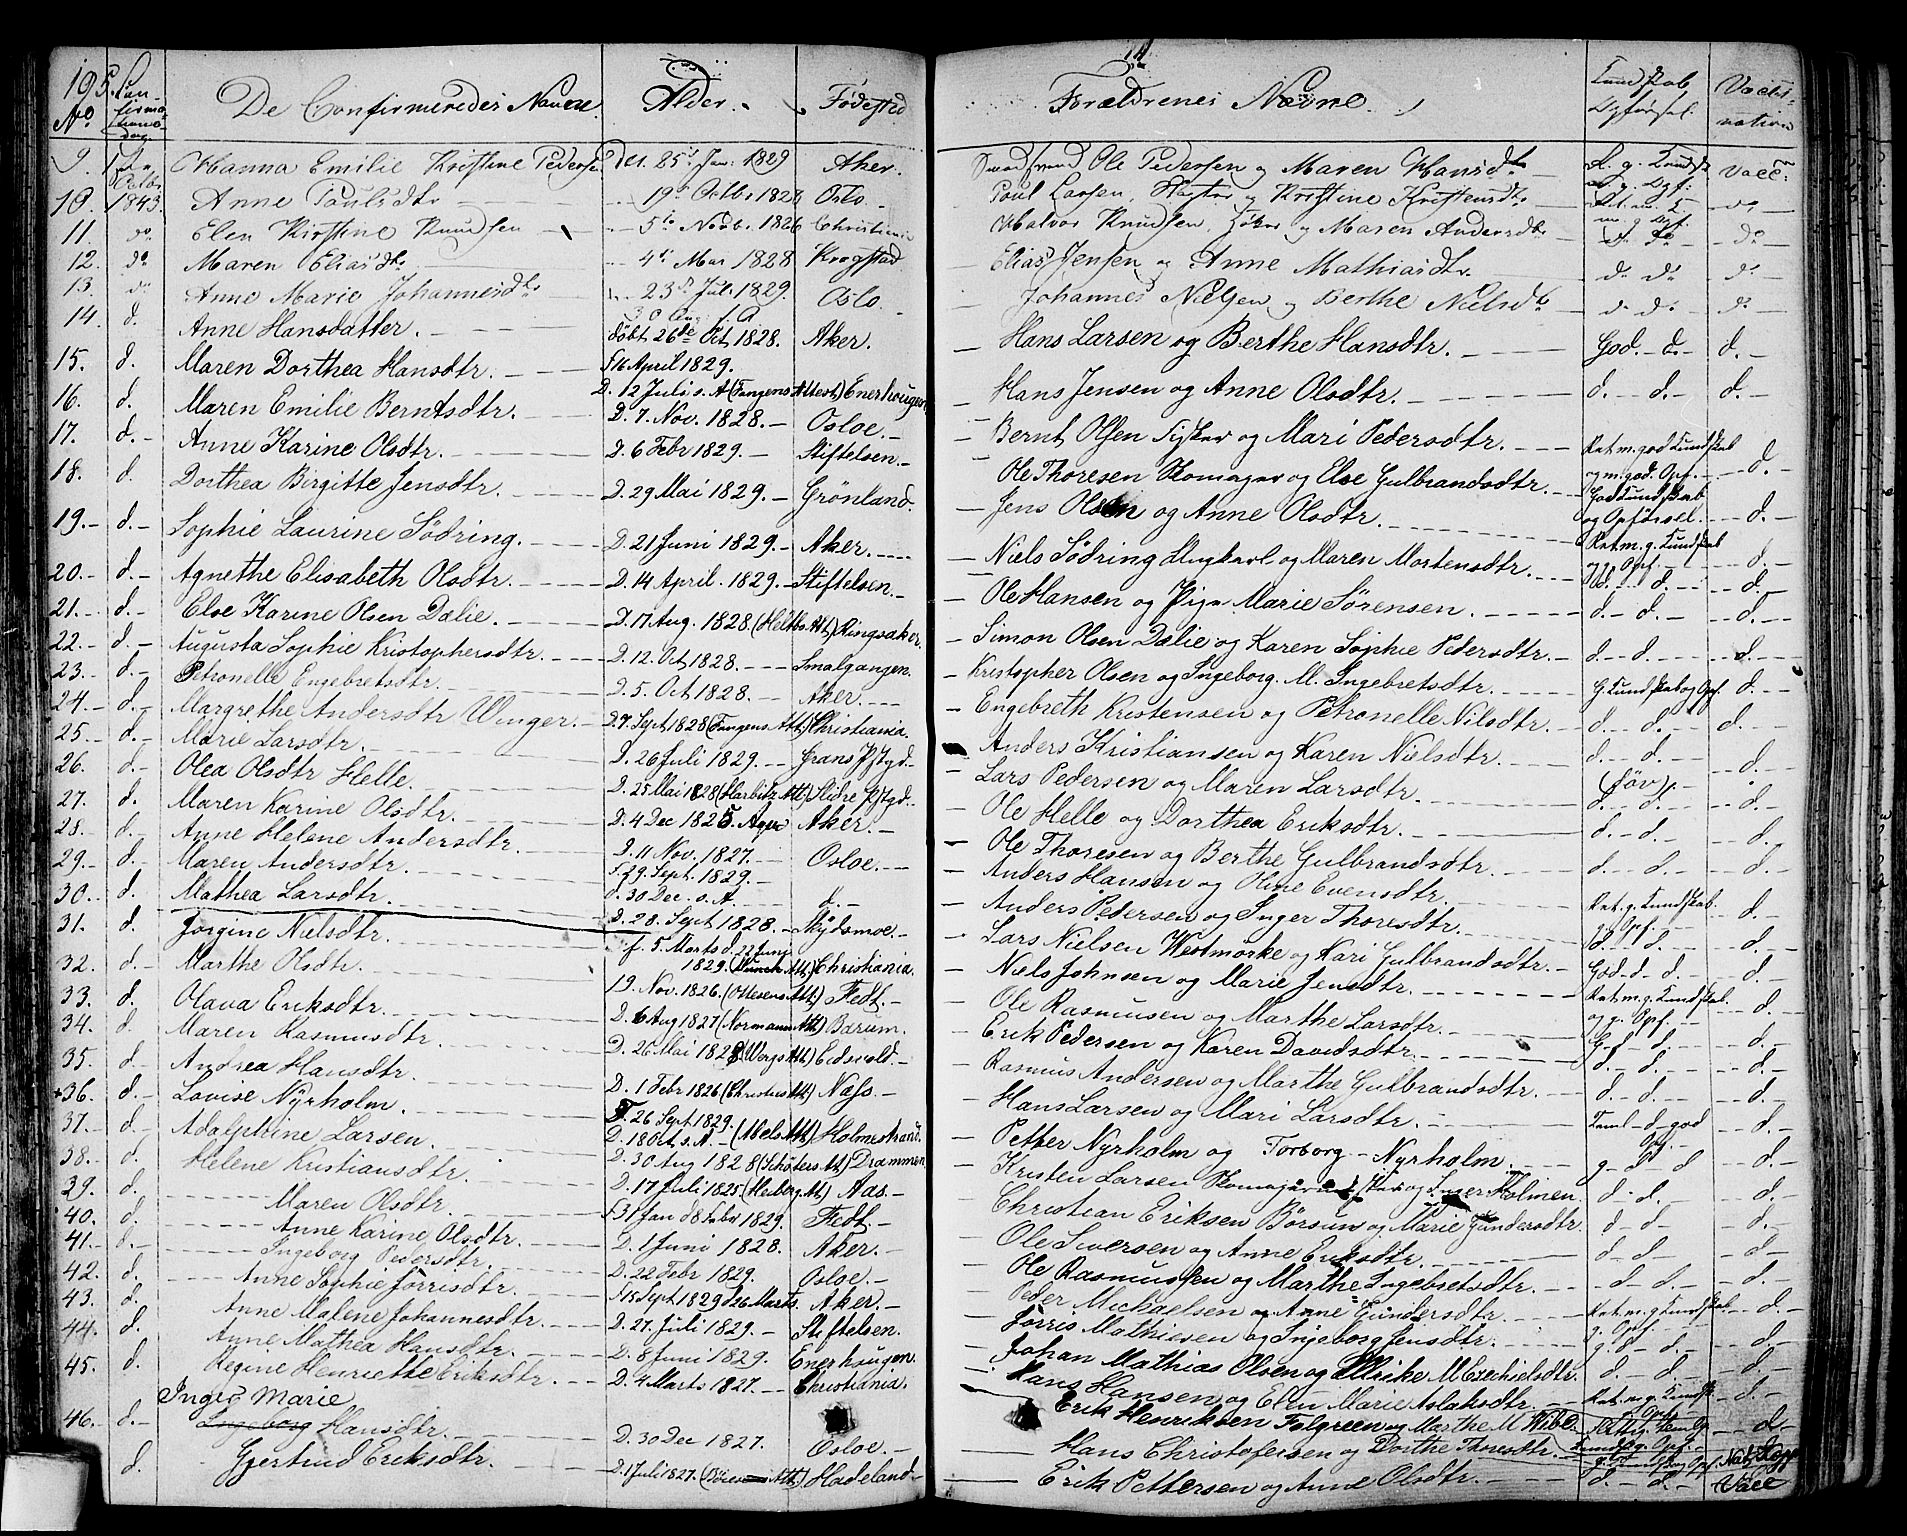 195.
No.
Confirmations Dag
De Confirmeredes Navne.
Alder.
Fødested
Forældrenes Navne.
Kundskab Opførsel.
Vaccination
9. 1ste Octbr Hanna Emilie Kristine Pedersen Jan. 1829 Aker. Ole Pedersen og Maren Hansdtr. Vacc.
10. 1843. Anne Paulsdtr 19de Octbr 1828 Oslo Poul Larsen, og Kristine Kristensdtr do
11. do Elen Kirstine Knudsen 5te Novbr. 1826 Christiania Halvor Knudsen, og Maren Andersdtr do do
12. do Maren Eliasdtr 4de Mar 1828 Krogstad Elias Jensen og Anne Mathiasdtr. do do do
13. do Anne Marie Johannesdtr 23de Juli 1829. Oslo. Johannes Nielsen og Berthe Nielsdtr do do do
14. d. Anne Hansdatter. døbt 26de Oct 1828. Aker. Hans Larsen og Berthe Hansdtr. God. d. d.
15. d. Maren Dorthea Hansdtr. F 16 April 1829. D. 12 Juli s. A (Tangens Attest) Enerhougen Hans Jensen og Anne Olsdtr. d. d. d.
16. d. Maren Emilie Berntsdtr. D. 7. Nov. 1828. Osloe. Bernt Olsen Fisker og Mari Pedersdtr. Ret m. god Kundskab og m. god. Opf. d.
17. d. Anne Karine Olsdtr. D. 6 Febr 1829. Stiftelsen Ole Thoresen Skomager og Else Gulbrandsdtr. God Kundskab og Opførsel. d.
18. d. Dorthea Birgitte Jensdtr. D. 29 Mai 1829. Grønland. Jens Olsen og Anne Olsdtr. Ret m. g. Kundskab og g. Opf. d.
19. d. Sophie Laurine Södring. D. 21 Juni 1829. Aker. Niels Södring Huskarl og Maren Mortensdtr. d. d. d.
20. d. Agnethe Elisabeth Olsdtr. D. 14 April. 1829. Stiftelsen Ole Hansen og Pige Marie Sørensen. d. d. d.
21. d. Else Karine Olsen Dælie. D. 17 Aug. 1828. (Heltbs Att) Ringsaker. Simon Olsen Dælie og Karen Sophie Pedersdtr. d. d. d.
22. d. Augusta Sophie Kristophersdtr. D. 12. Oct 1828. Smalgangen. Kristopher Olsen og Ingeborg. M. Ingebretsdtr. G. Kundskab og Opf. d.
23. d. Petronelle Engebretsdtr. D. 5. Oct 1828. Aker. Engebreth Kristensen og Petronelle Nilsdtr. d. d. d.
24. d. Margrethe Andersdtr Winger. D. 7. Sept 1828 (Tangens Att) Christiania. Anders Kristiansen og Karen Nielsdtr. d. d. d.
25. d. Marie Larsdtr. D. 26 Juli 1829. Grans Pstgd. Lars Pedersen og Maren Larsdtr. (Døv). d. d. d.
26. d. Olea Olsdtr Helle. D. 25 Mai 1828 (Harbitz Att) Slidre Pstgd. Ole Helle og Dorthea Eriksdtr. d. d. d.
27. d. Maren Karine Olsdtr. D. 4 Dec 1825. Aker. Ole Thoresen og Berthe Gulbrandsdtr. d. d. d.
28. d. Anne Helene Andersdtr. D. 11 Nov. 1827. Osloe. Anders Hansen og Oline Evensdtr. Ret. g. Kundskab. g. Opf. d.
29. d. Maren Andersdtr. F. 29. Sept. 1829. d. 30 Dec. s. A. d. Anders Pedersen og Inger Thoresdtr. d. d. d.
30. d. Mathea Larsdtr. D. 28. Sept 1828. Skydsmoe. Lars Nielsen Westmörke og Kari Gulbrandsdtr. God d. d. d.
31. d. Jörgine Nielsdtr. f. 5. Marts d. 22 Juni 1829. (Munch Att) Christiania. Niels Johnsen og Marie Jensdtr. Ret m. g. Kundskab. og g. Opf. d.
32. d. Marthe Olsdtr. 19. Nov. 1826. (Ottesens Att.) Fedt. Ole Rasmusen og Marthe Larsdtr. G. d. d. d.
33. d. Olava Eriksdtr. D. 6 Aug 1827 (Normanns Att) Bærum. Erik Pedersen og Karen Davidsdtr. d. d. d.
34. d. Maren Rasmusdtr. D. 26 Mai 1828 (Wergs Att) Eidsvold. Rasmus Andersen og Marthe Gulbrandsdtr. d. d. d.
35. d. Andrea Hansdtr. D. 1 Febr 1826 (Christies Att) Næss. Hans Larsen og Mari Larsdtr. Teml. d. god Opf. d.
+36. d. Lovise Nyrholm. F 26 Sept 1829. D. 18 Oct s. A. (Abels Att) Holmestrand. Petter Nyrholm og Torborg Nyrholm. g. d. d. d.
37. d. Adolphine Larsen. D. 30 Aug 1828 (Schøters Att) Drammen Kristen Larsen Skomager og Inger Holmen. d. d. d.
38. d. Helene Kristiansdtr. D. 17 Juli 1825. (Heiberg Att.) Aas. Christian Eriksen Börsum og Marie Gundersdtr. d. d. d.
39. d. Maren Olsdtr. F 31 Jan d 8 Febr 1829. Fedt. Ole Siversen og Anne Eriksdtr. d. d. d.
40. d. Anne Karine Olsdtr. D. 1 Juni 1828. Aker. Ole Rasmussen og Marthe Ingebretsdtr. d. d. d.
41. d. Ingeborg Pedersdtr. D. 22 Febr 1829. Osloe. Peder Michaelsen og Anne Gundersdtr. Ret. m. g. Kundskab. g. Opf. d.
42. d. Anne Sophie Jörrisdtr. F 15 Sept 1829 d 26 Marts. Aker. Jörris Mathiesen og Ingeborg Jensdtr. g. d. d. d.
43. d. Anne Malene Johannesdtr. D. 27. Juli 1829. Stiftelsen. Johan Mathias Olsen og Ulrike M Ezechielsdtr. d. d. d.
44. d. Anne Mathea Hansdtr. D. 8 Juni 1829. Enerhougen. Hans Hansen og Elen Marie Aslaksdtr. Ret. m. g. Kundsk. g. Opf. d.
45. d. Regine Henriette Eriksdtr. D. 4 Marts 1827. Christiania. Erik Henriksen Falgreen og Marthe M Wibe. d.
Inger Marie
46. d. Ingeborg Hansdtr. D. 30 Dec 1827. Osloe. Hans Christofersen og Dorthe Thoresdtr. Nat. Kopp
d. Gjertrud Eriksdtr. D. 1 Juli 1827. Hadeland Erik Pettersen og Anne Olsdtr. d. d. Vacc